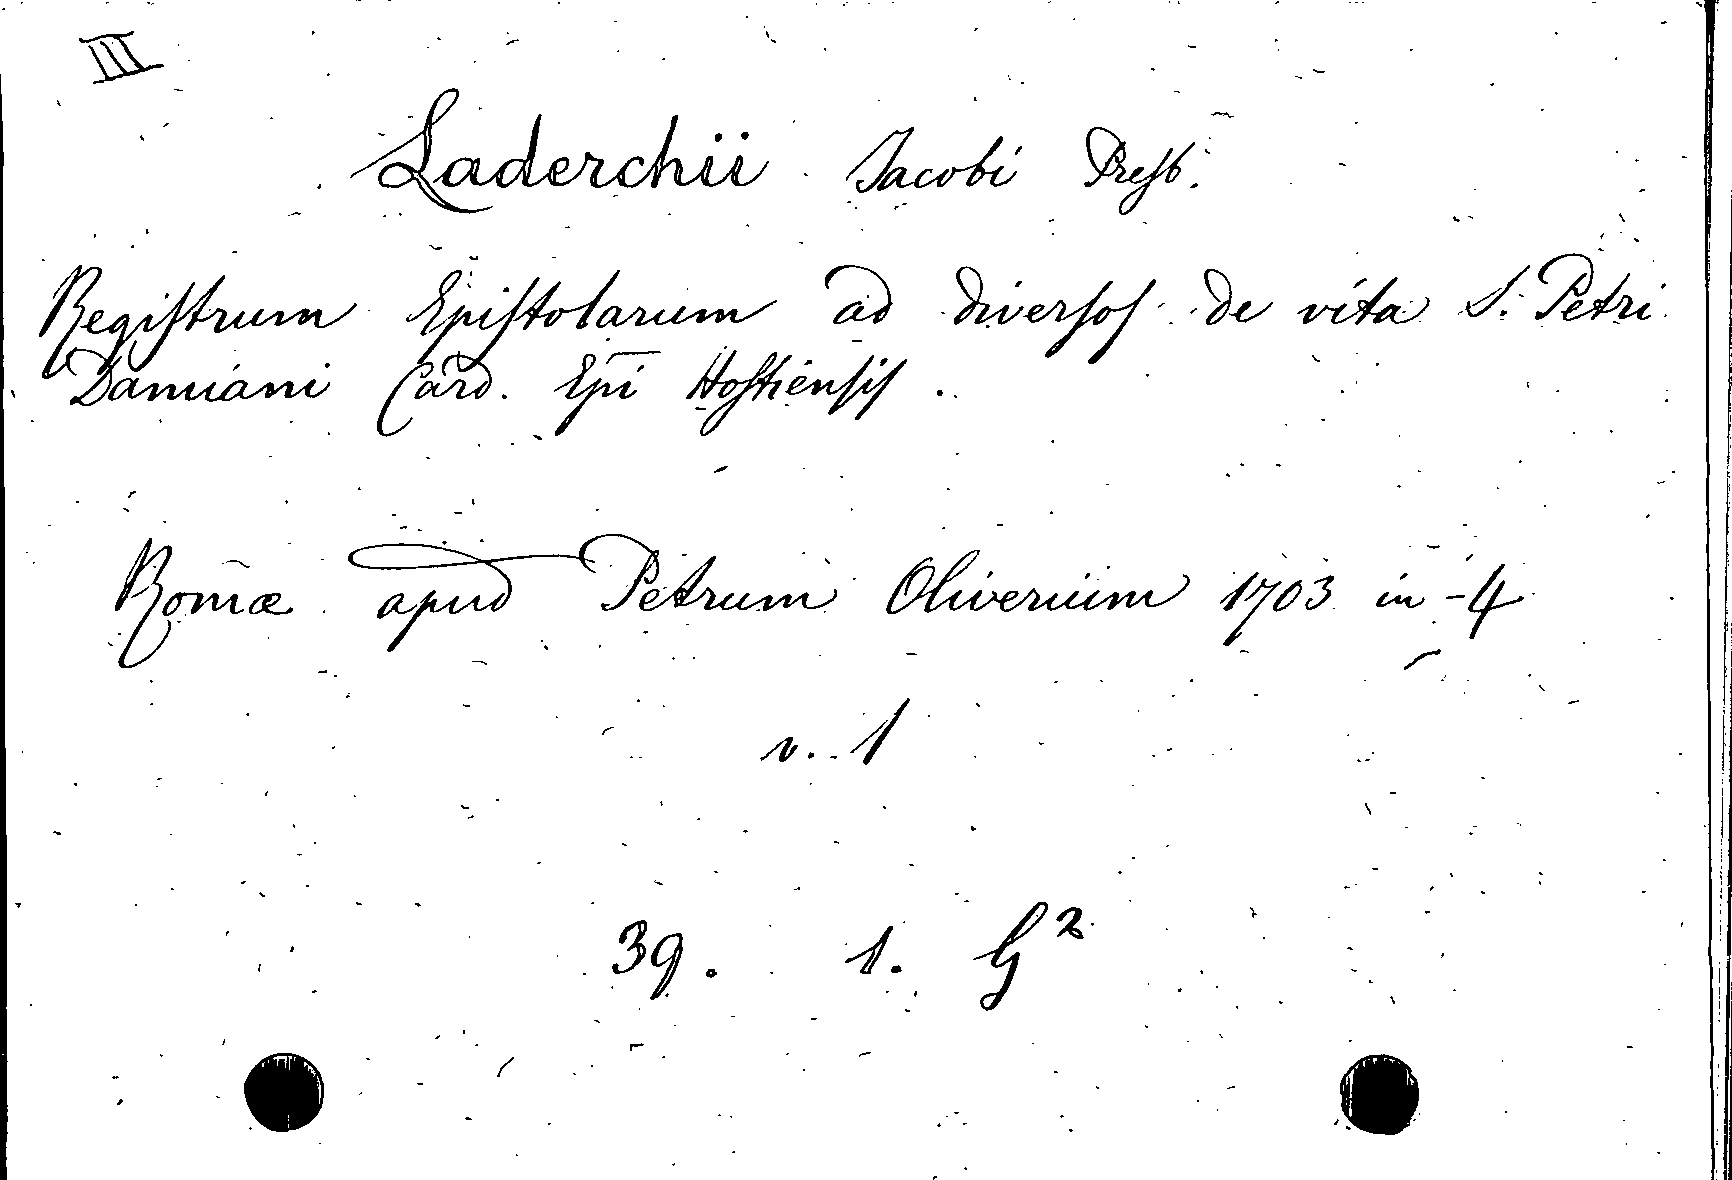 III
Laderchii Jacobi Presb.
Registrum Epistolarum ad diversos de vita S. Petri
Damiani Card. Epī Hostiensis.
Romæ apud Petrum Oliverium 1703 in-4
v. 1
39. 1. G²